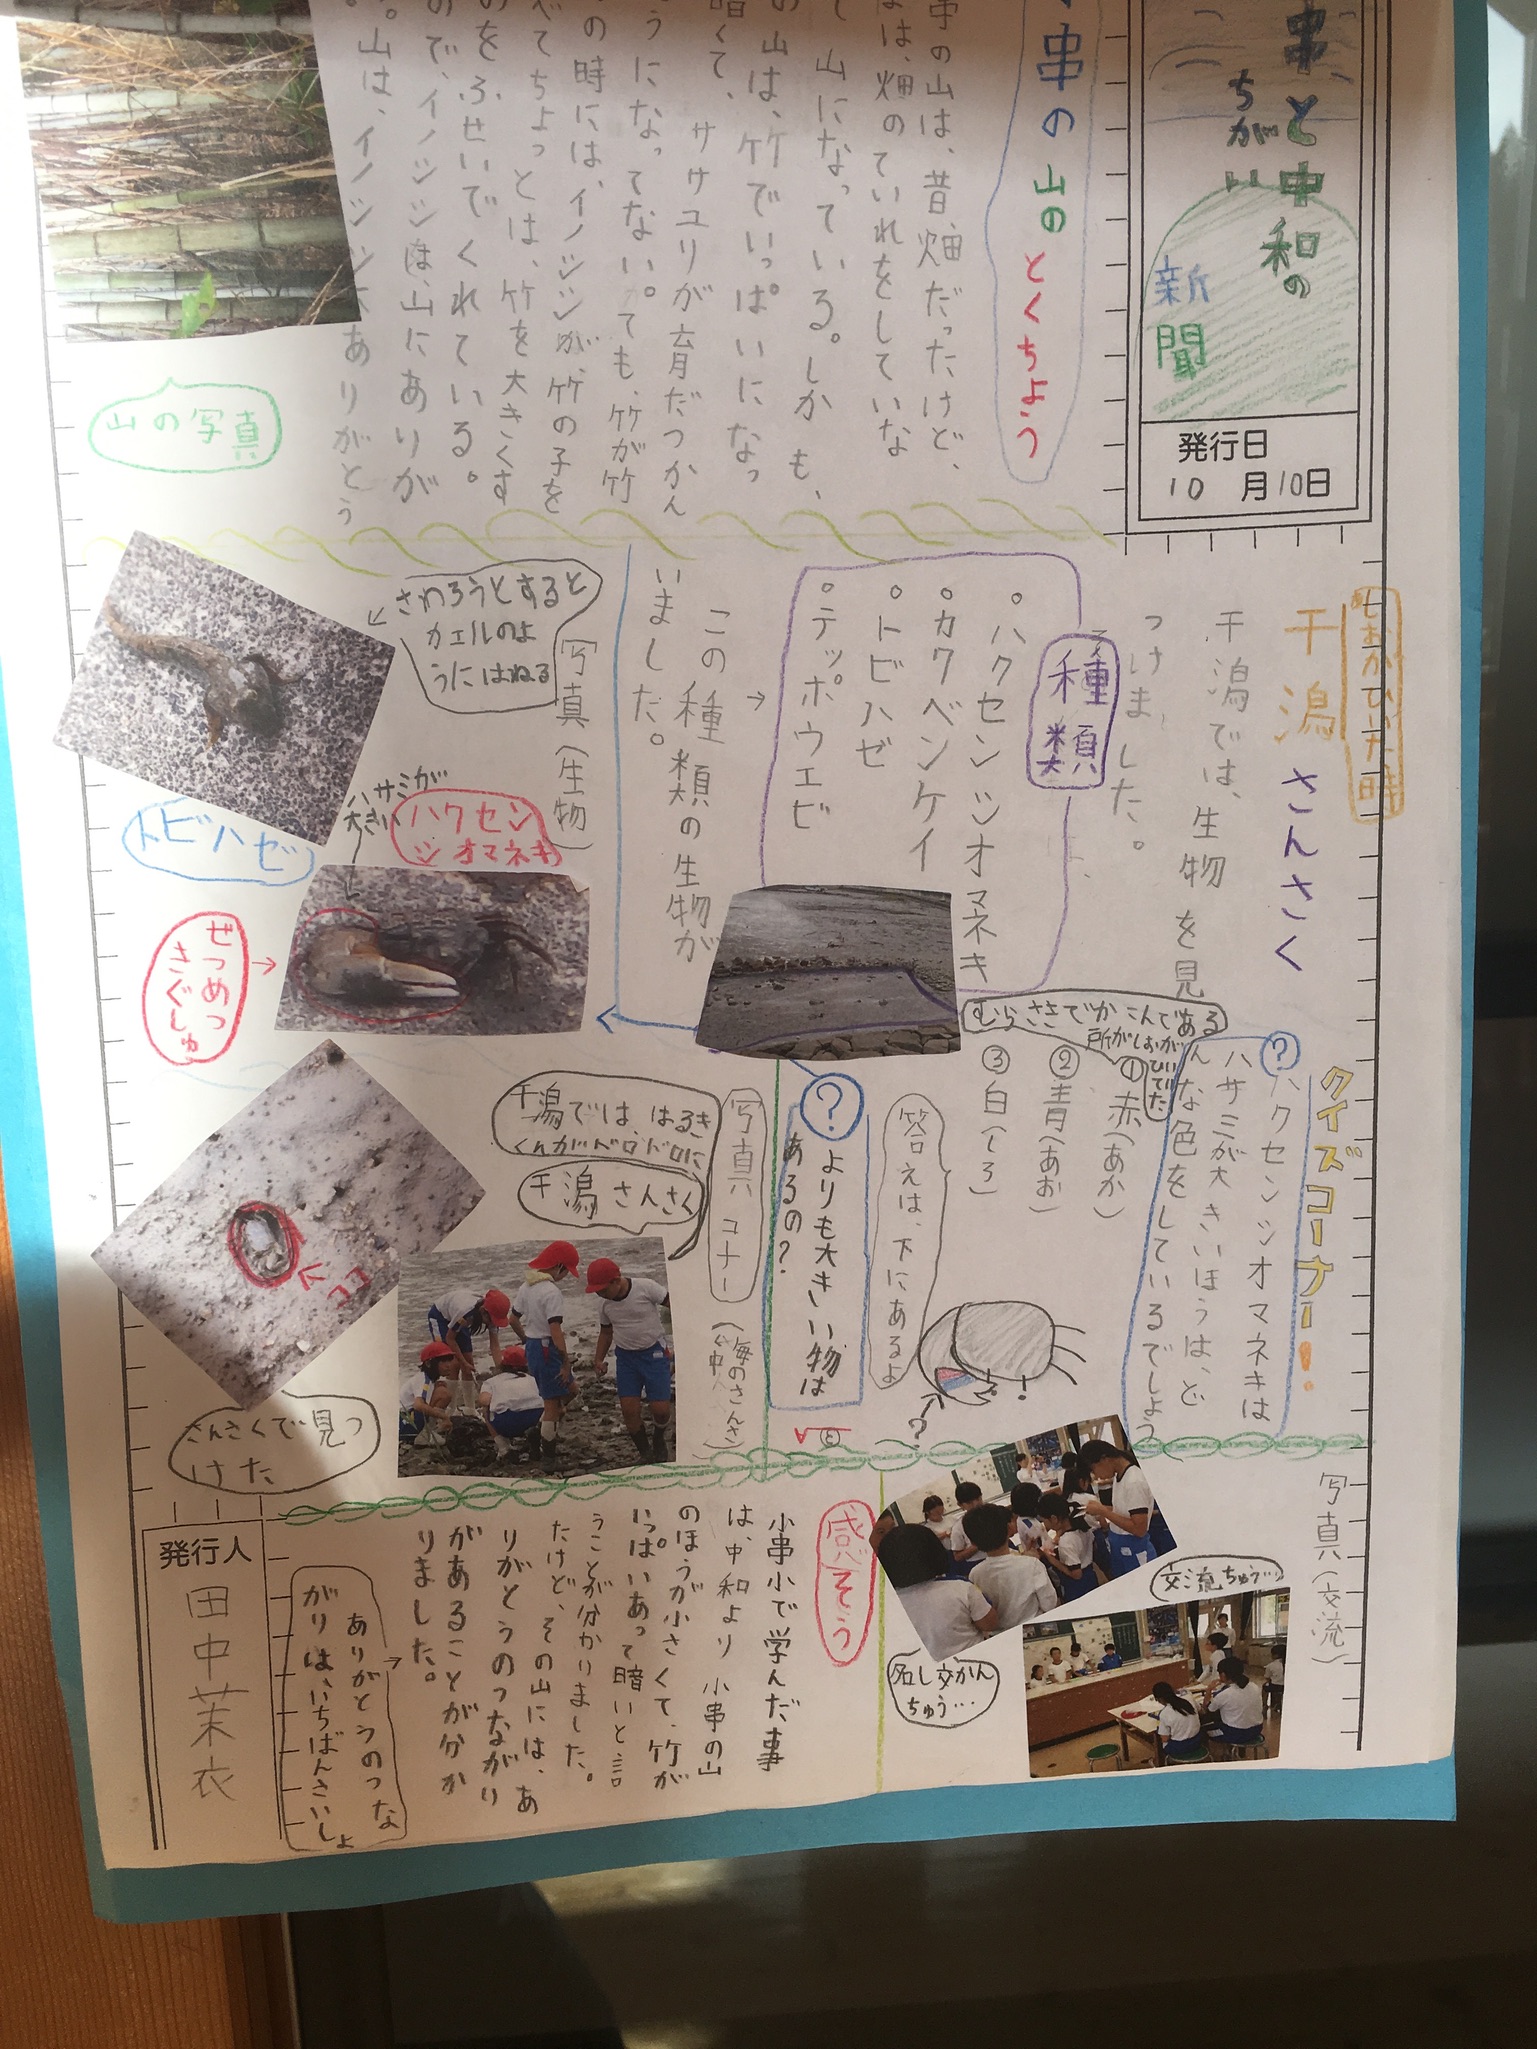 串と中和の
ちがい
新聞
発行日
10月10日
串の山のとくちょう
串の山は、昔、畑だったけど、
は、畑のていれをしていな
て山になっている。しかも、
の山は、竹でいっぱいになっ
暗くて、
ササユリが育だつかん
うになってない。
ても、竹が竹
の時には、イノシシが、竹の子を
べてちょっとは、竹を大きくす
のを、ふせいでくれている。
ので、イノシシは、山にありが
。山は、イノシシ
ありがとう
山の写真
しおがひいた時
干潟さんさく
干潟では、生物を見
つけました。
種類
・ハクセンシオマネキ
・カクベンケイ
・トビハゼ
・テッポウエビ
この種類の生物が
いました。
写真(生物)
さわろうとすると
カエルのよ
うにはねる
トビハゼ
ハサミが
大きい
ハクセン
シオマネキ
ぜつめつ
きぐしゅ
むらさきでかこんである
所がしおが
ひいてた
クイズコーナー!
?ハクセンシオマネキは
ハサミが大きいほうは、ど
んな色をしているでしょう
①赤(あか)
②青(あお)
③白(しろ)
答えは、下にあるよ
!
?
?よりも大きい物は
あるの?
③
写真コナー
(海のさんさく中)
干潟では、はるき
くんがベロドロに
干潟さんさく
ココ
さんさくで見つ
けた
写真(交流)
交流ちゅう…
名し交かん
ちゅう…
感そう
小串小で学んだ事
は、中和より小串の山
のほうが小さくて、竹が
いっぱいあって暗いと言
うことが分かりました。
たけど、その山には、あ
りがとうのつながり
があることが分か
りました。
ありがとうのつな
がりは、いちばんさいしょ
発行人
田中茉衣